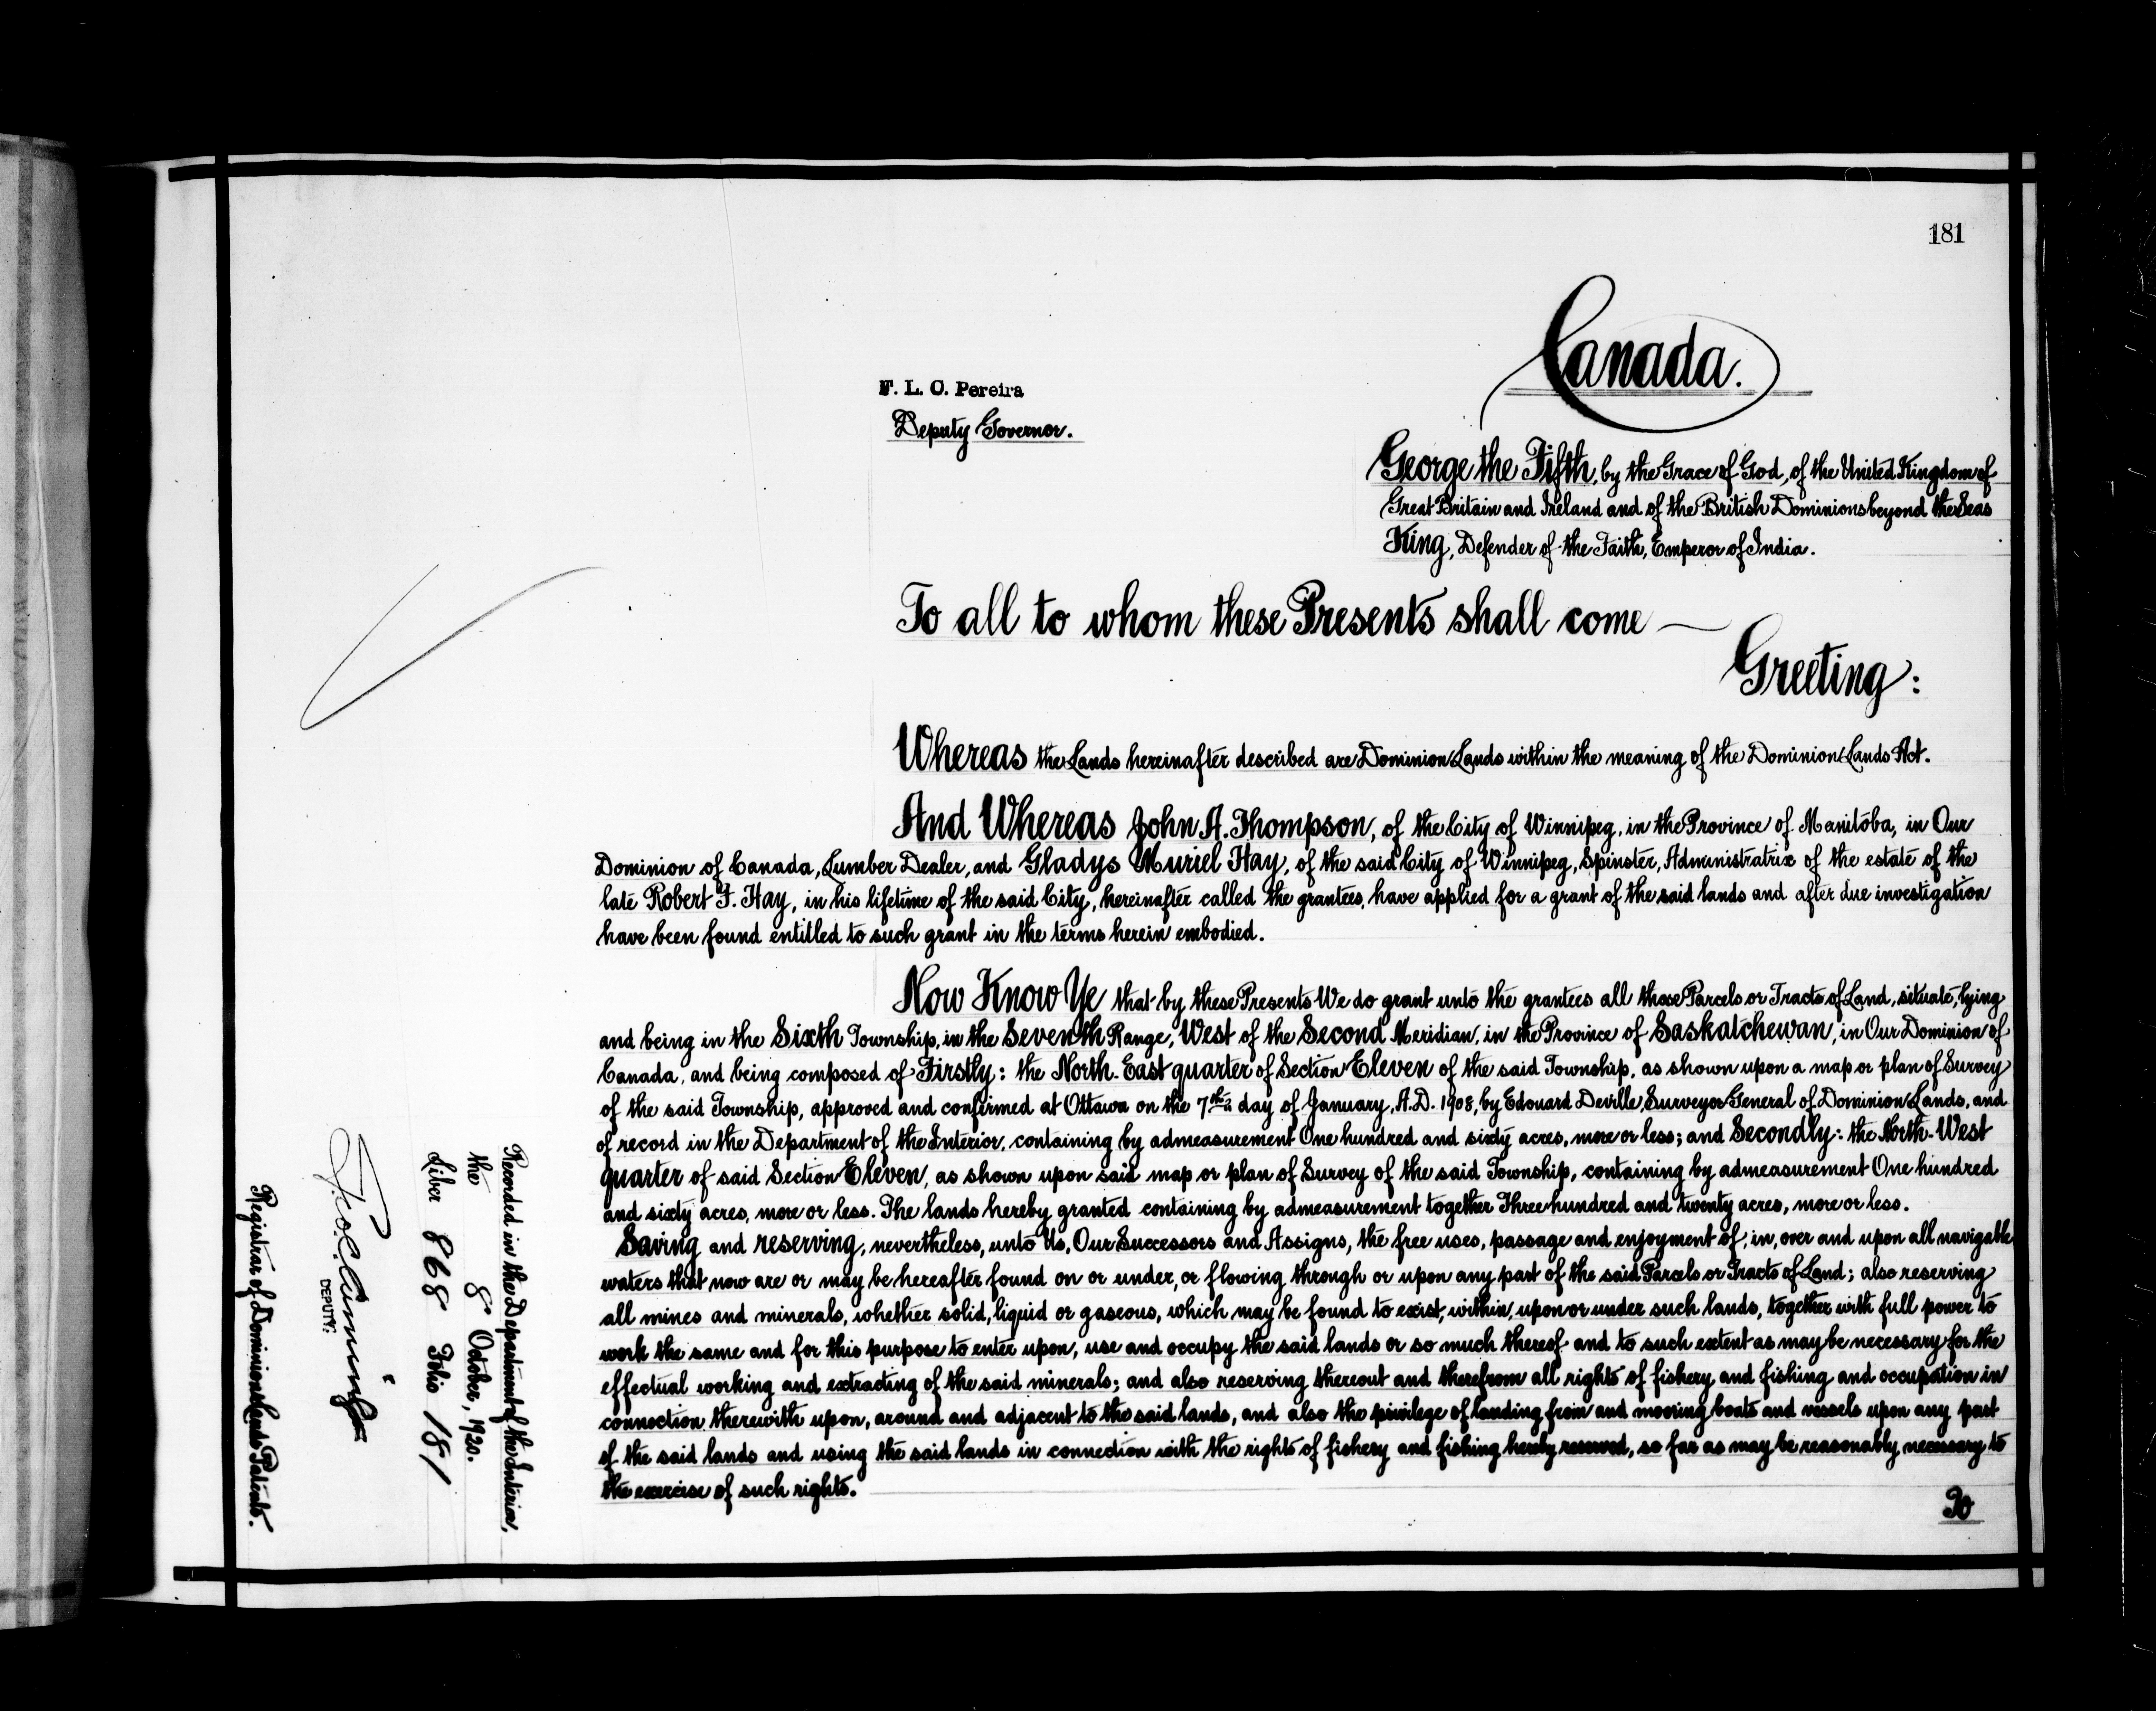 181
Canada.
F. L. C. Pereira
Deputy Governor.
George the Fifth, by the Grace of God, of the United Kingdom of
Great Britain and Ireland and of the British Dominions beyond the Seas
King, Defender of the Faith, Emperor of India.
To all to whom these Presents shall come —
Greeting:
Whereas the Lands hereinafter described are Dominion Lands within the meaning of the Dominion Lands Act.
And Whereas John A. Thompson, of the City of Winnipeg, in the Province of Manitoba, in Our
Dominion of Canada, Lumber Dealer, and Gladys Muriel Hay, of the said City of Winnipeg, Spinster, Administratrix of the estate of the
late Robert F. Hay, in his lifetime of the said City, hereinafter called the grantees, have applied for a grant of the said lands and after due investigation
have been found entitled to such grant in the terms herein embodied.
Now Know Ye that by these Presents We do grant unto the grantees all those Parcels or Tracts of Land, situate, lying
and being in the Sixth Township, in the Seventh Range, West of the Second Meridian, in the Province of Saskatchewan, in Our Dominion of
Canada, and being composed of Firstly: the North-East quarter of Section Eleven of the said Township, as shown upon a map or plan of Survey
of the said Township, approved and confirmed at Ottawa on the 7th day of January, A.D. 1908, by Edouard Deville, Surveyor General of Dominion Lands, and
of record in the Department of the Interior, containing by admeasurement One hundred and sixty acres, more or less; and Secondly: the North-West
quarter of said Section Eleven, as shown upon said map or plan of Survey of the said Township, containing by admeasurement One hundred
and sixty acres, more or less. The lands hereby granted containing by admeasurement together Three hundred and twenty acres, more or less.
Saving and reserving, nevertheless, unto Us, Our Successors and Assigns, the free uses, passage and enjoyment of, in, over and upon all navigable
waters that now are or may be hereafter found on or under, or flowing through or upon any part of the said Parcels or Tracts of Land; also reserving
all mines and minerals, whether solid, liquid or gaseous, which may be found to exist, within, upon or under such lands, together with full power to
work the same and for this purpose to enter upon, use and occupy the said lands or so much thereof and to such extent as may be necessary for the
effectual working and extracting of the said minerals; and also reserving thereout and therefrom all rights of fishery and fishing and occupation in
connection therewith upon, around and adjacent to the said lands, and also the privilege of landing from and mooring boats and vessels upon any part
of the said lands and using the said lands in connection with the rights of fishery and fishing hereby reserved, so far as may be reasonably necessary to
the exercise of such rights.
To
Recorded in the Department of the Interior,
the 8 October, 1920.
Liber 868 Folio 181
DEPUTY:
Registrar of Dominion Lands Patents.